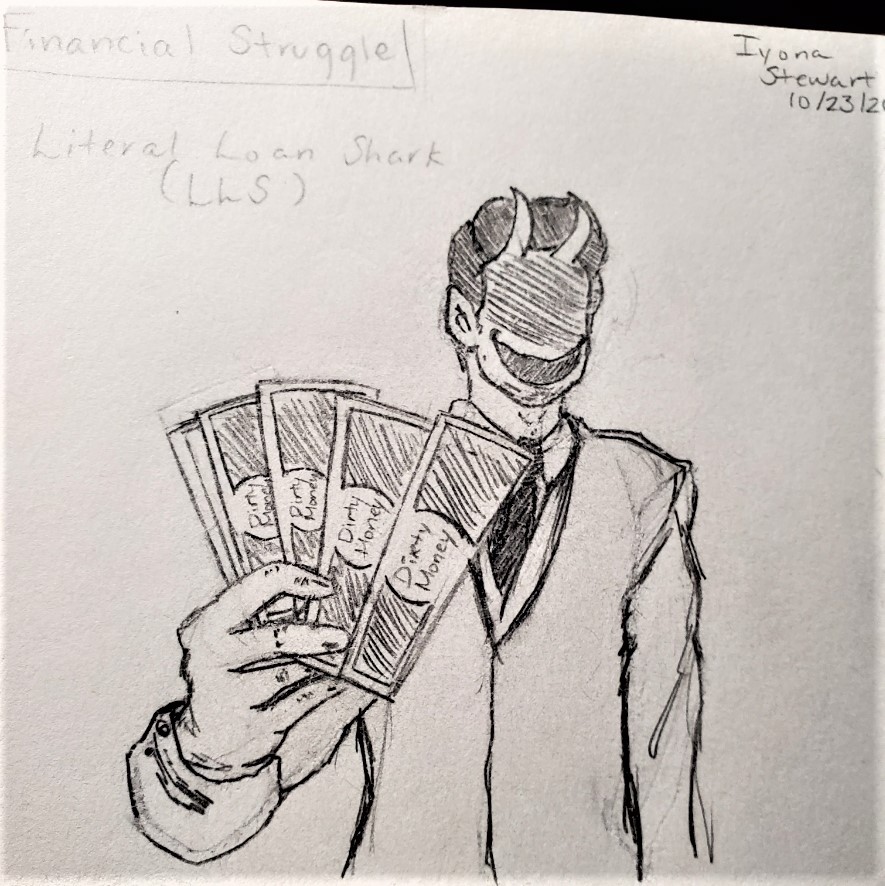 Financial Struggle
Iyona
Stewart
10/23/20
Literal Loan Shark
(LLS)
Dirty
Money
Dirty
Money
Dirty
Money
Dirty
Money